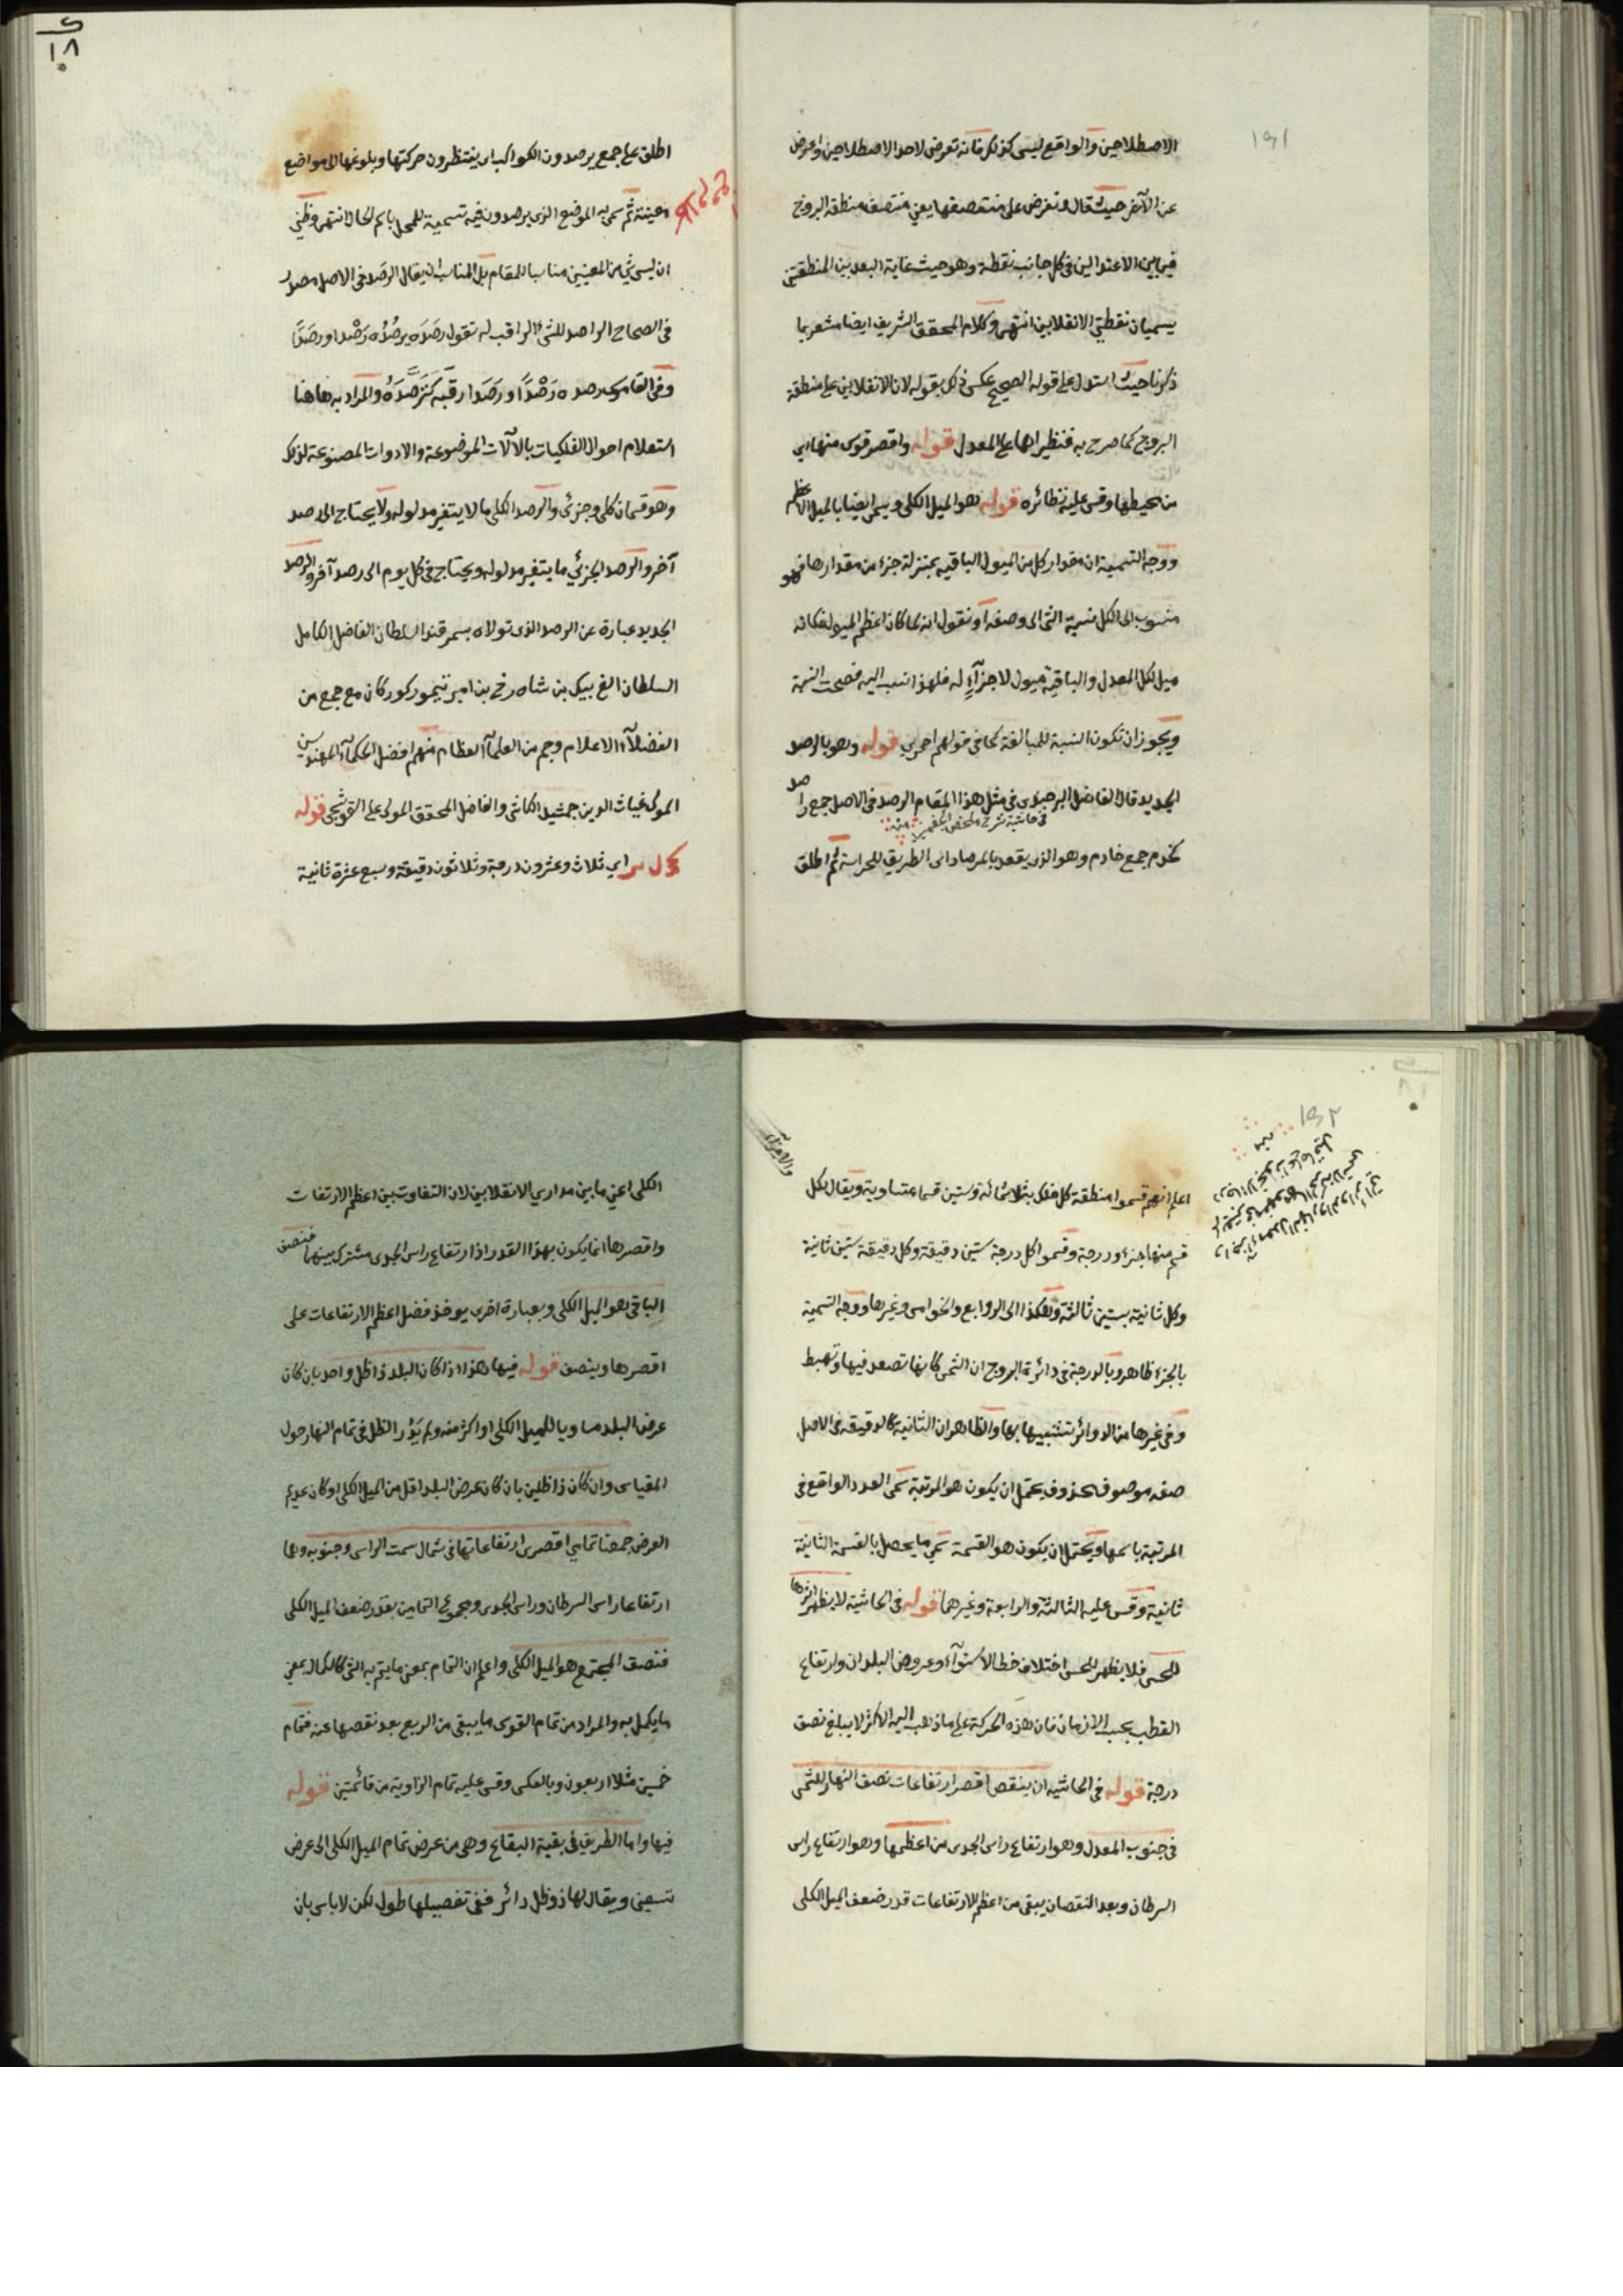 الاصطلاحين والواقع ليس كذلك فانه تعرض لاحد الاصطلاحين واعرض
عن الآخر حيث قال وتفرض على منتصفها يعني منتصف منطقة البروج
فيما بين الاعتدالين في كل جانب نقطة وهو حيث غاية البعد بين المنطقتين
يسميان نقطتي الانقلابين انتهى وكلام المحقق الشريف ايضا مشعر بما
ذكرنا حيث استدل على قوله الصحيح عكس ذلك بقوله لان الانقلابين على منطقة
البروج كما صرح به فنظيراهما على المعدل قوله واقصر قوس منها اي
من محيطها وقس عليه نظائره قوله هو الميل الكلي ويسمى ايضا بالميل الاعظم
ووجه التسمية ان مقدار كل من الميول الباقية بمنزلة جزء من مقدارها فهو
منسوب الى الكل نسبة الشئ الى وصفه او نقول انه لما كان اعظم الميول فكانه
ميل لكل المعدل والباقية ميول لاجزآءٍ له فلهذا انسب اليه فصحت النسبة
ويجوز ان تكون النسبة للمبالغة كما في قولهم احمري قوله وهو بالرصد
الجديد قال الفاضل البرجندي في مثل هذا المقام الرصد في الاصل جمع راصد
في حاشية شرح ملخص الجغميني منه
كخدم جمع خادم وهو الذي يقعد بالمرصاد اى الطريق للحراسة ثم اطلق
١٥١
١٨
اطلق على جمع يرصدون الكواكب اى ينتظرون حركتها وبلوغها الى مواضع
معينة ثم سمى به الموضع الذي يرصدون فيه تسمية للمحل باسم الحال انتهى وظني
ان ليس شئ من المعنيين مناسبا للمقام بل المناسب ان يقال الرصد في الاصل مصدر
في الصحاح الراصد للشئ الراقب له تقول رصَدَه يرصُدُه رَصْدا ورصَدًا
وفي القاموس رصده رَصْدًا ورَصَدا رقَبَه كَتَرَصَّدَهُ والمراد به هاهنا
استعلام احوال الفلكيات بالآلات الموضوعة والادوات المصنوعة لذلك
وهو قسمان كلي وجزئى والرصد الكلي ما لا يتغير مدلوله ولا يحتاج الى رصد
آخر والرصد الجزئي ما يتغير مدلوله ويحتاج في كل يوم الى رصد آخر والرصد
الجديد عبارة عن الرصد الذي تولاه بسمرقند السلطان الفاضل الكامل
السلطان الغ بيك بن شاه رخ بن امير تيمور كوركان مع جمع من
الفضلآء الاعلام وجم من العلمآء العظام منهم افضل الحكمآء المهندسين
المولى غياث الدين جمشيد الكاشى والفاضل المحقق المولى على القوشجى قوله
اي ثلاث وعشرون درجة وثلاثون دقيقة وسبع عشرة ثانية
١٥٢
اعلم انهم قسموا منطقة كل فلك بثلاثمائة وستين قسما متساوية ويقال لكل
قسم منها جزء ودرجة وقسموا كل درجة ستين دقيقة وكل دقيقة ستين ثانية
وكل ثانية بستين ثالثة وهكذا الى الروابع والخوامس وغيرها ووجه التسمية
بالجزء ظاهر وبالدرجة في دائرة البروج ان الشمس كانها تصعد فيها وتهبط
وفي غيرها من الدوائر تشبيها بها والظاهر ان الثانية كالدقيقة في الاصل
صفة موصوف محذوف يحتمل ان يكون هو المرتبة سمى العدد الواقع في
المرتبة باسمها ويحتمل ان يكون هو القسمة سمي ما يحصل بالقسمة الثانية
ثانية وقس عليه الثالثة والرابعة وغيرهما قوله في الحاشية لا يظهر اثرها
للحس فلا يظهر للحس اختلاف خط الاستوآء وعروض البلدان وارتفاع
القطب بحسب الازمان فان هذه الحركة على ما ذهب اليه الاكثر لا يبلغ نصف
درجة قوله في الحاشية ان ينقص اقصر ارتفاعات نصف النهار للشمس
في جنوب المعدل وهو ارتفاع راس الجدى من اعظمها وهو ارتفاع راس
السرطان وبعد النقصان يبقى من اعظم الارتفاعات قدر ضعف الميل الكلى
الكلى اعني ما بين مداري الانقلابين لان التفاوت بين اعظم الارتفاعات
واقصرها انما يكون بهذا القدر اذ ارتفاع راس الجدى مشترك بينهما فنصف
الباقي هو الميل الكلى وبعبارة اخرى يوخذ فضل اعظم الارتفاعات على
اقصرها وينصف قوله فيها هذا اذا كان البلد ذا ظل واحد بان كان
عرض البلد مساويا للميل الكلى او اكثر منه ولم يَدُر الظل في تمام النهار حول
المقياس وان كان ذا ظلين بان كان عرض البلد اقل من الميل الكلى او كان عديم
العرض جمعنا تمامي اقصرى ارتفاعاتها في شمال سمت الراس وجنوبه وهما
ارتفاعا راس السرطان وراس الجدى ومجموع التمامين بقدر ضعف الميل الكلى
فنصف المجتمع هو الميل الكلى واعلم ان التمام بمعنى ما يتم به الشئ كالكمال بمعنى
ما يكمل به والمراد من تمام القوس ما يبقى من الربع بعد نقصها عنه فتمام
خمسين مثلا اربعون وبالعكس وقس عليه تمام الزاوية من قائمتين قوله
فيها واما الطريق في بقية البقاع وهي من عرض تمام الميل الكلى الى عرض
تسعين ويقال لها ذو ظل دائر ففي تفصيلها طول لكن لا باس بان